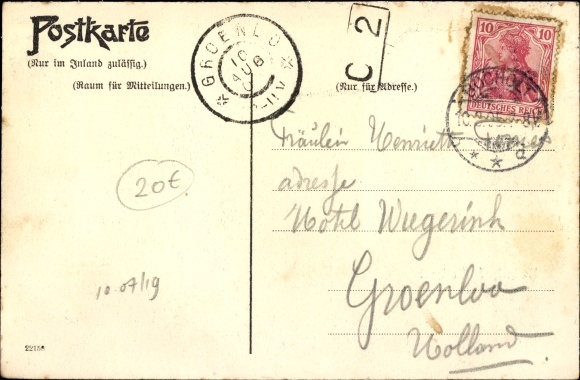 Postkarte
(Nur im Inland zulässig.)
(Raum für Mitteilungen.)
(Nur für Adresse.)
GROENLO
10
AUG
C 2
10 10
DEUTSCHES REICH
Fräulein Henriett
adresse
Hotl Wiegerink
Groenloo
Holland
20€
10.07/19
22156